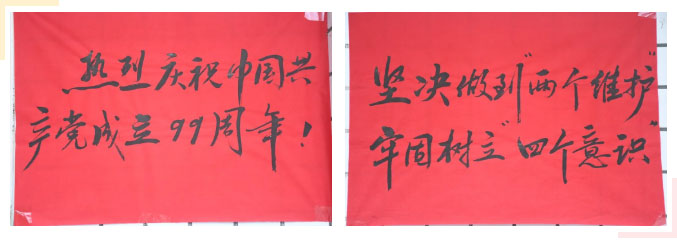 热烈庆祝中国共
产党成立99周年！
坚决做到"两个维护"
牢固树立"四个意识"